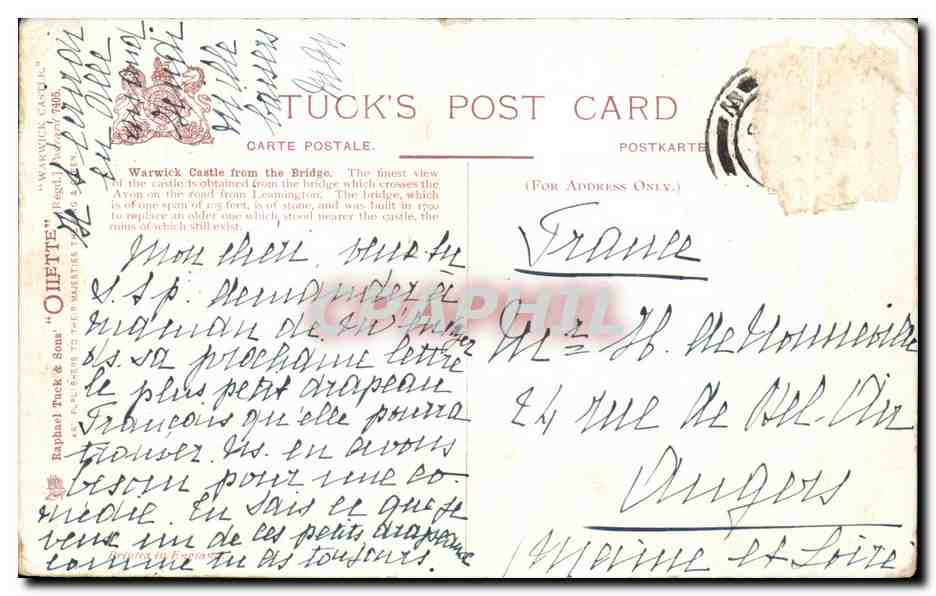 TUCK'S POST CARD
CARTE POSTALE.
POSTKARTE
(FOR ADDRESS ONLY.)
Warwick Castle from the Bridge. The finest view
of the castle is obtained from the bridge which crosses the
Avon on the road from Leamington. The bridge, which
is of one span of 105 feet, is of stone, and was built in 1790
to replace an older one which stood nearer the castle, the
ruins of which still exist.
Mon cheri, veux tu
s.s.p. demander à
maman de m'envoyer
ds. sa prochaine lettre
le plus petit drapeau
Français qu'elle pourra
trouver. Ns. en avons
besoin pour une co-
médie. Tu sais ce que je
veux un de ces petits drapeaux
comme tu as toujours.
France
Mr. H. de Monneville
24 rue de Bel Air
Angers
(Maine et Loire
Raphael Tuck & Sons' "OILETTE" [Regd.] Postcard 7405.
"WARWICK CASTLE."
ART PUBLISHERS TO THEIR MAJESTIES THE KING & QUEEN.
Printed in England
CPAPHIL